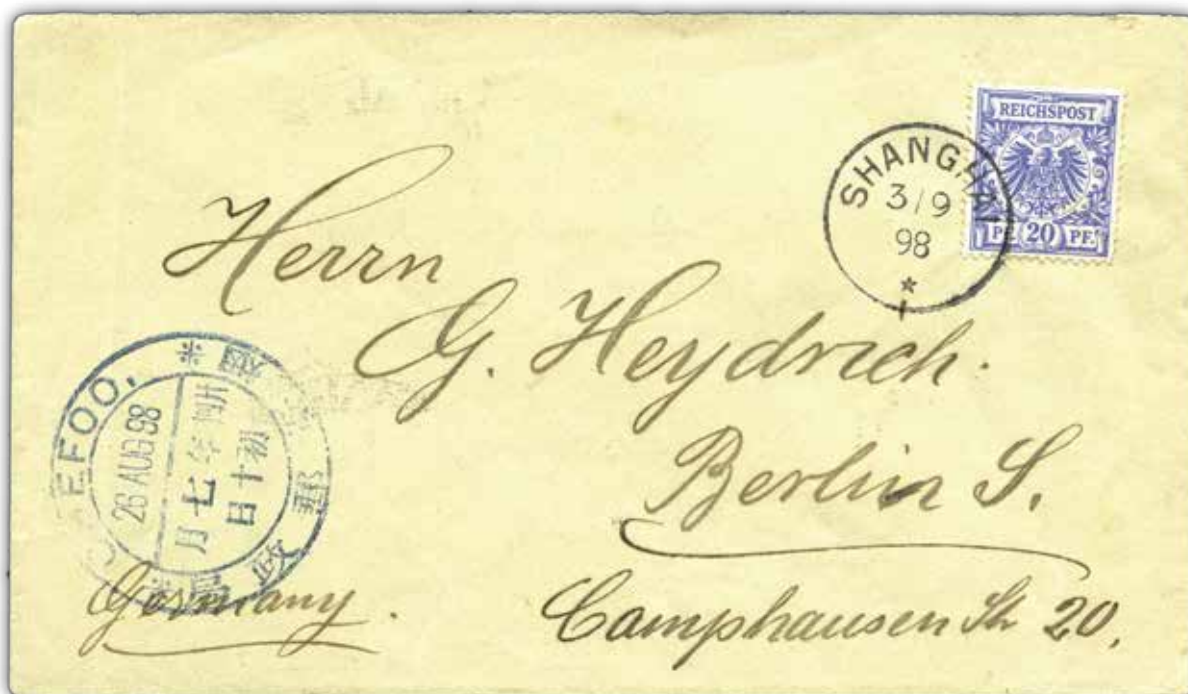 REICHSPOST
PF. 20 PF.
SHANGHAI
3/9
98
Herrn
G. Heydrich.
Berlin S.
Camphausen Str 20.
Germany.
EFOO,
26 AUG 98
年七月
初十日
郵政局